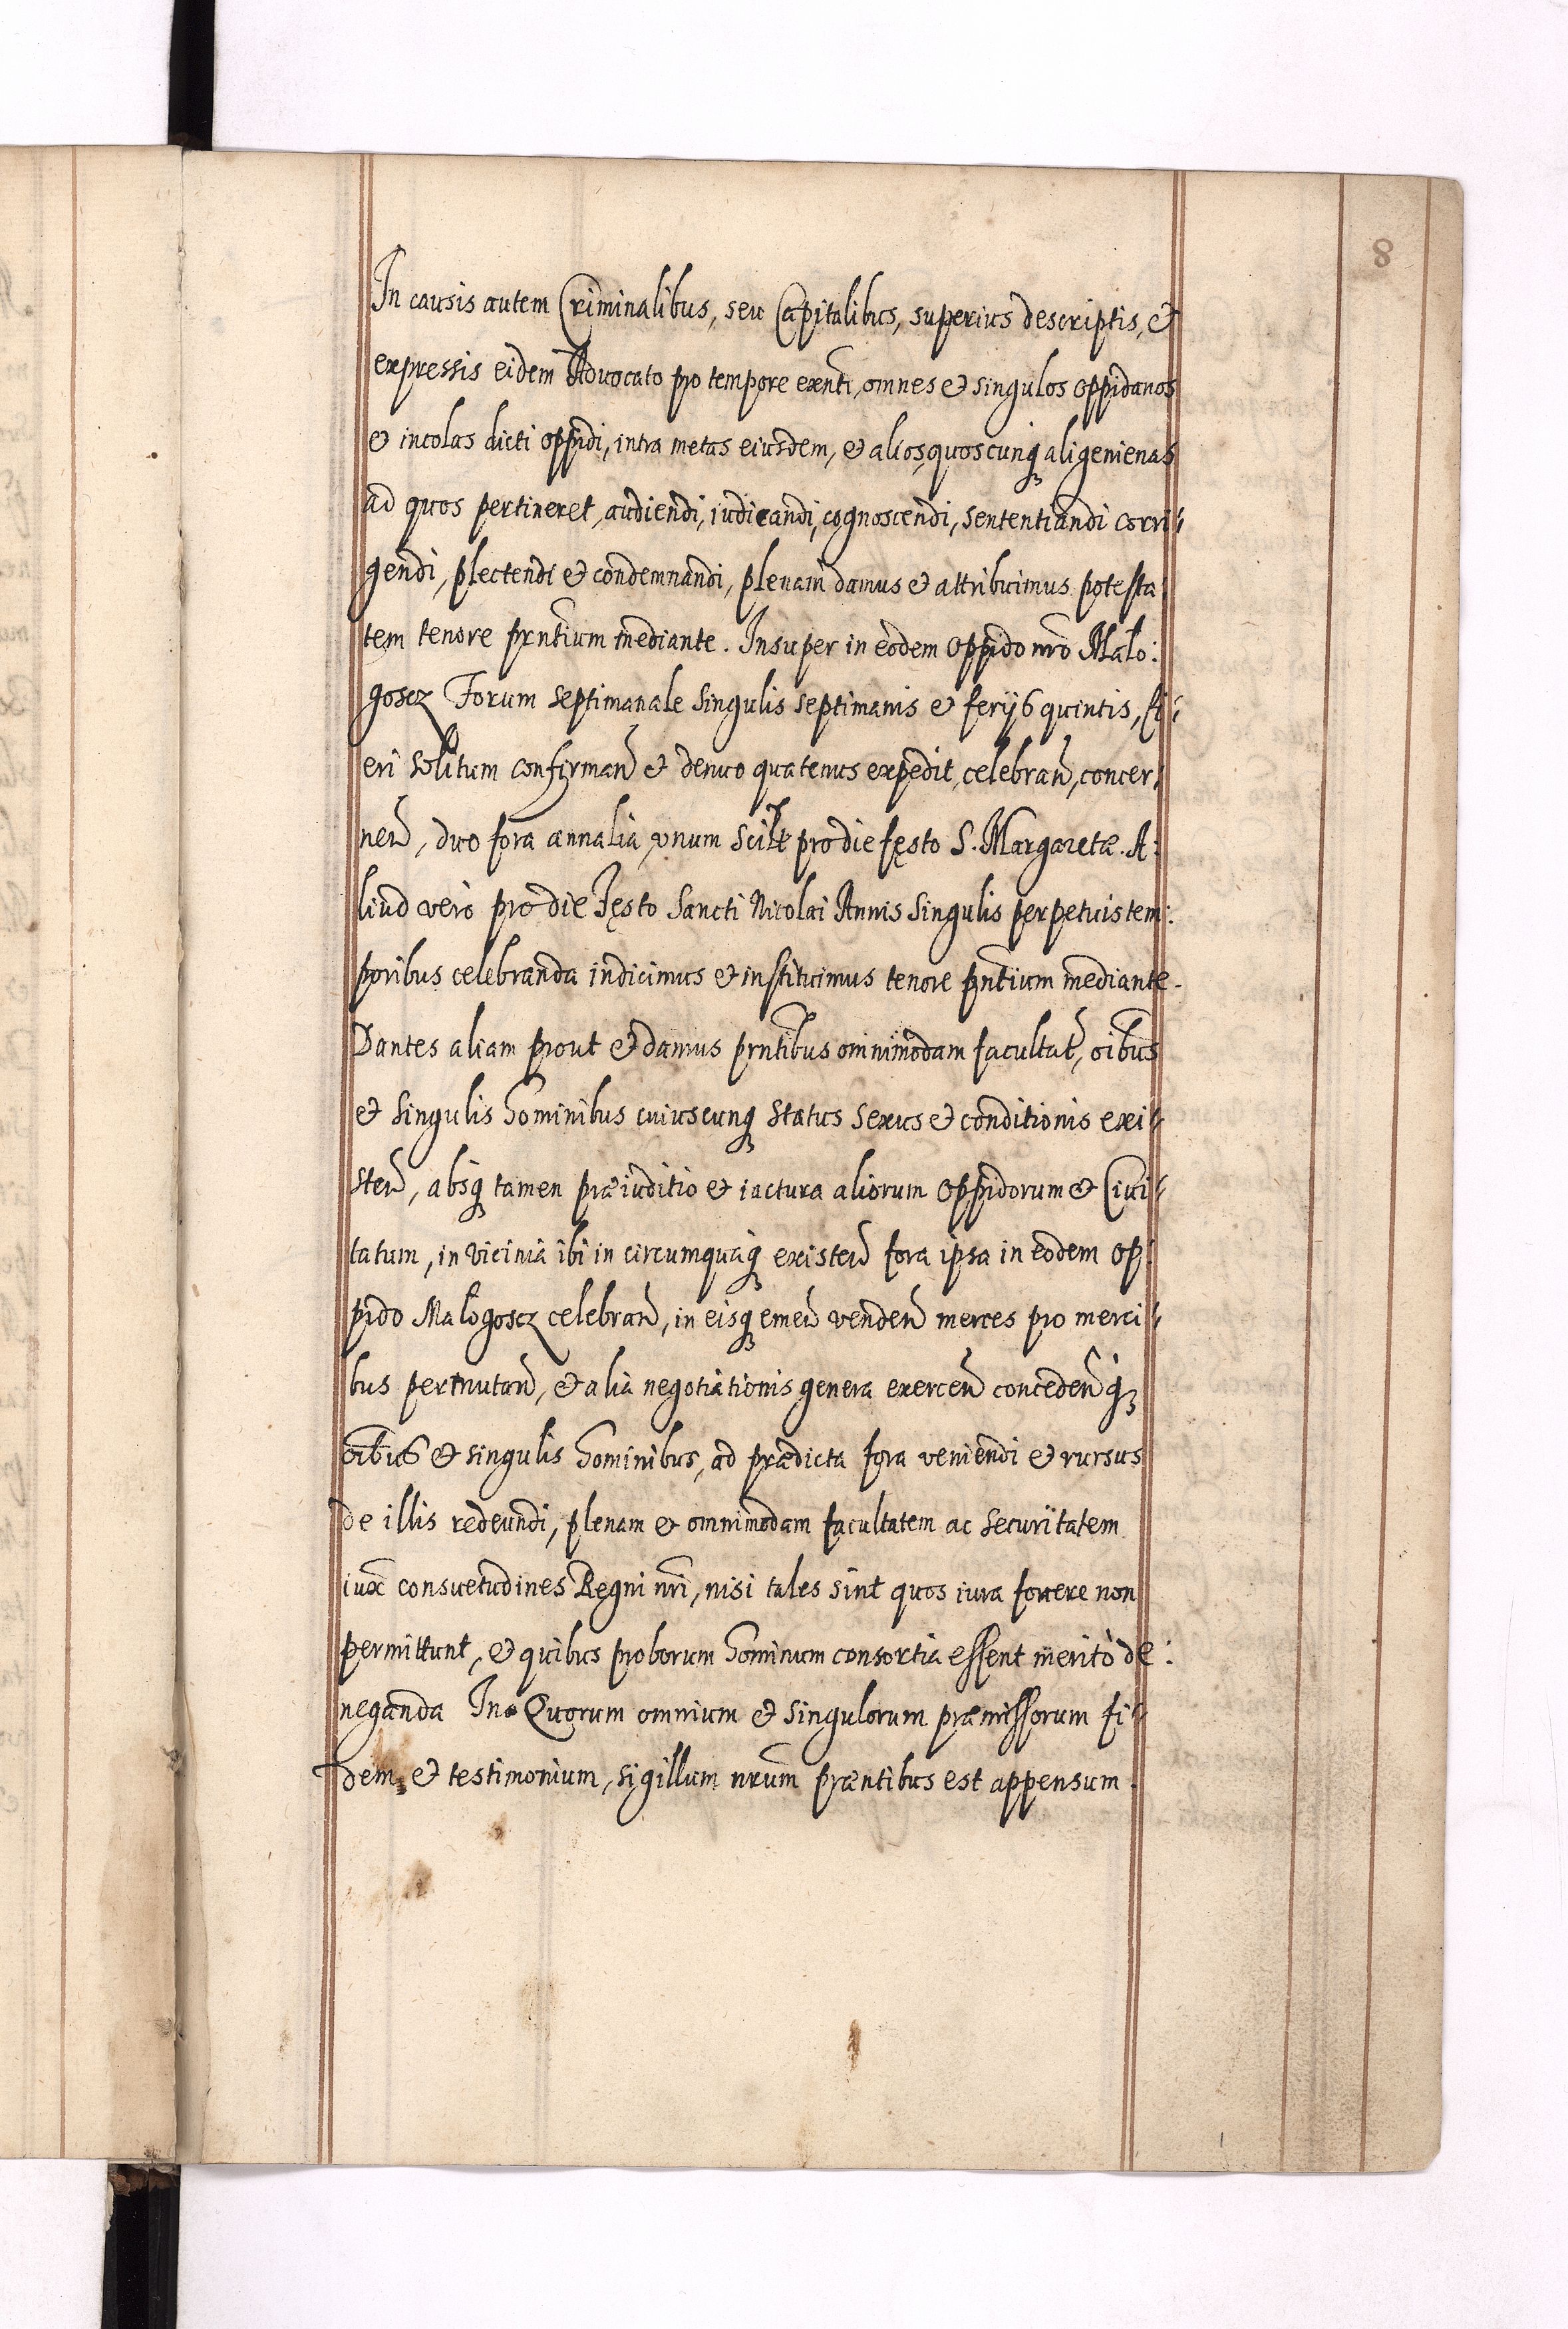 8
In causis autem Criminalibus, seu Capitalibus, superius descriptis, et
expressis eidem Advocato pro tempore exnti, omnes et singulos oppidanos
et incolas dicti oppidi, intra metas eiusdem, et alios, quoscunq aligenienas
ad quos pertineret, audiendi, iudicandi, cognoscendi, sententiandi corri-
gendi, plectendi et condemnandi, plenam damus et attribuimus potesta
tem tenore prntium mediante. Insuper in eodem oppido nro Malo:
goscz Forum septimanale singulis septimanis et ferijs quintis, fi-
eri solitum confirman et denuo quatenus expedit, celebran, concer,
nen, duo fora annalia, vnum scilt pro die festo S. Margaretæ. A:
liud verò pro die Festo Sancti Nicolai Annis singulis perpetuis tem:
poribus celebranda indicimus et instituimus tenore pntium mediante.
Dantes aliam prout et damus prntibus omnimodam facultat, oibus
et singulis hominibus cuiuscunq status sexus et conditionis exi-
sten, absq tamen præiuditio et iactura aliorum oppidorum et Civi-
tatum, in vicinia ibi in circumquaq existen fora ipsa in eodem op:
pido Malogoscz celebran, in eisq emen venden merces pro merci-
bus permutan, et alia negotiationis genera exercen conceden q
oibus et singulis hominibus, ad prædicta fora veniendi et rursus
de illis redeundi, plenam et omnimodam facultatem ac securitatem
iux consuetudines Regni nri, nisi tales sint quos iura fovere non
permittunt, et quibus proborum hominum consortia essent meritò de:
neganda In Quorum omnium et singulorum præmissorum fi-
dem, et testimonium, sigillum nrum præntibus est appensum.